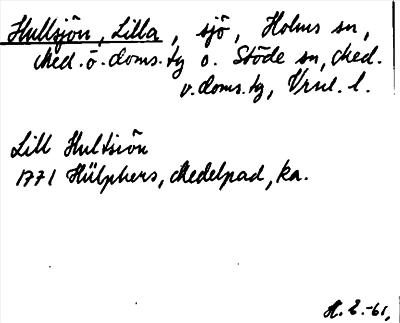 Hullsjön, Lilla, sjö, Holms sn,
Med. ö. doms. tg o. Stöde sn, Med.
v. doms. tg, Vrnl. l.
Lill Hultsiön
1771 Hülphers, Medelpad, ka.
H. L. -61.